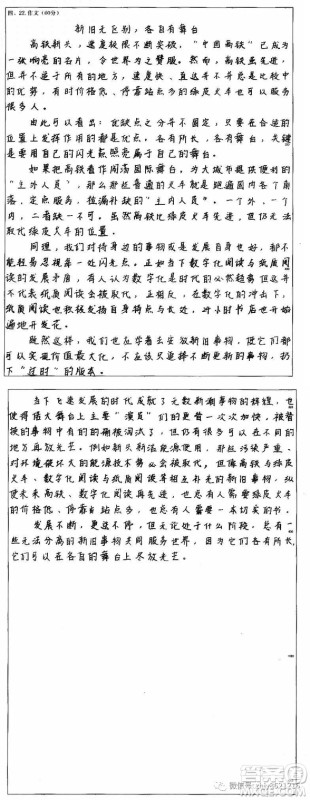 四、22.作文(60分)
新旧无区别，各自有舞台
高铁新头，速度极限不断突破，“中国高铁”已成为
一张响亮的名片，令世界为之臂服。然而，高铁虽先进，
但并不适于所有的地方，速度快、直达并不并总是比较中
的优势，有时价格低、停靠站点多的绿皮火车也可以服务
很多人。
由此可以看出：优缺点之分并不固定，只要在合适的
位置上发挥作用的都是优点。各有所长，各有舞台，关键
是要用自己的闪光点照亮属于自己的舞台。
如果把高铁看作闯荡国际舞台，为大城市提供便利的
“主外人员”，那么那些普通的火车就是跑遍国内各个角
落、定点服务，拾漏补缺的“主内人员”。一个外、一个
内，二者缺一不可。虽然高铁比绿皮火车先进，但仍无法
取代绿皮火车的位置。
同理，我们对待身边的事物或是发展自身也好，都不
能轻易忽视每一处闪光点。正如当下数字化阅读与纸质阅
读的发展矛盾，有人认为数字化是时代的必然趋势但这并
不代表纸质阅读会被取代，正相反，在数字化的冲击下，
纸质阅读也积极发扬自身特点与长处，对小时书店也开始
遍地开发花。
既然这样，我们也应学着去妥放新旧事物，使它们都
可以实现价值最大化，不应该只选择不断更新的事物，扔
下“过时”的版本。
当下飞速发展的时代成就了无数新潮事物的辉煌，也
使得偌大舞台上主要“演员”们的更替一次次加快，被替
换的事物中有的的确被淘汰了，但仍有很多可以在不同的
地方再放光芒。例如新兴新法能源使用，那些污染严重、
对环境破坏大的能源技术势必会被取代，但像高铁与绿皮
火车、数字化阅读与纸质阅读等相互补充的新旧事物，纵
使未来高铁、数字化阅读再先进，也总有人需要绿皮火车
的价格低、停靠站点多，也总有人需要一本切实的书。
发展不断，更迭不停，但无论处于什么阶段，总有一
些无法分离的新旧事物共同服务世界，因为它们各有所长，
它们可以在各自的舞台上尽放光芒。
答案圈